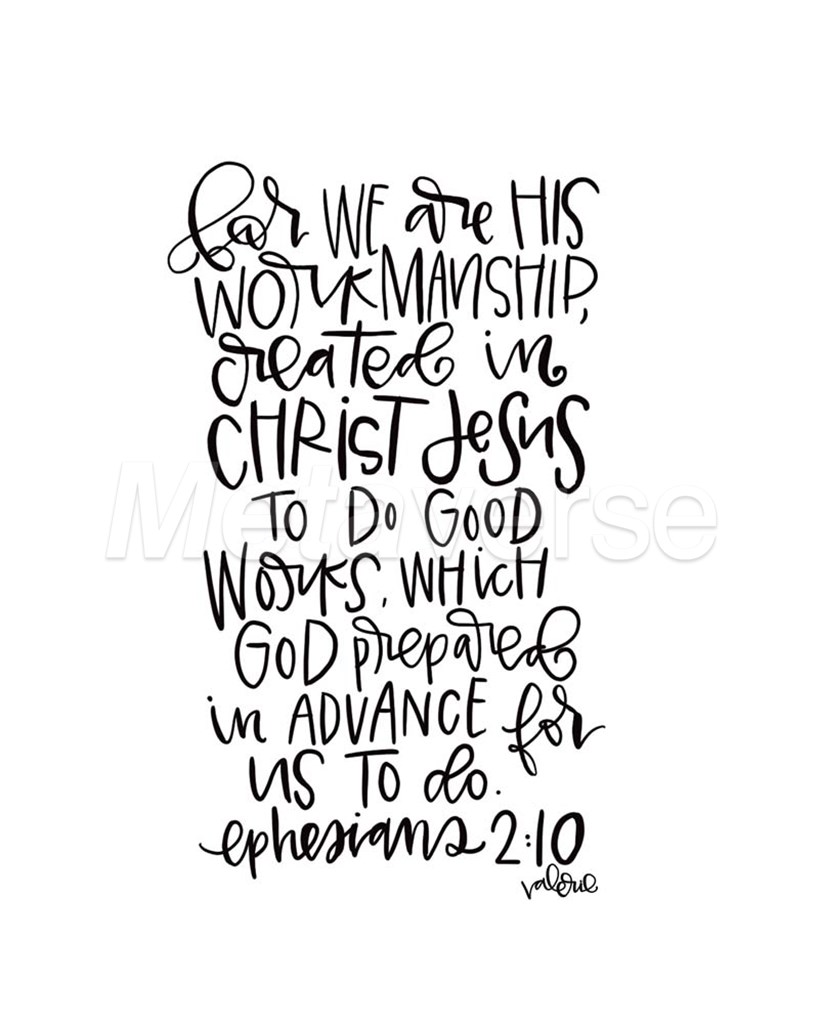 for WE are HIS
WORKMANSHIP,
created in
CHRIST JESUS
TO DO GOOD
WORKS, WHICH
GOD prepared
in ADVANCE for
us TO do.
ephesians 2:10
valerie
Metaverse